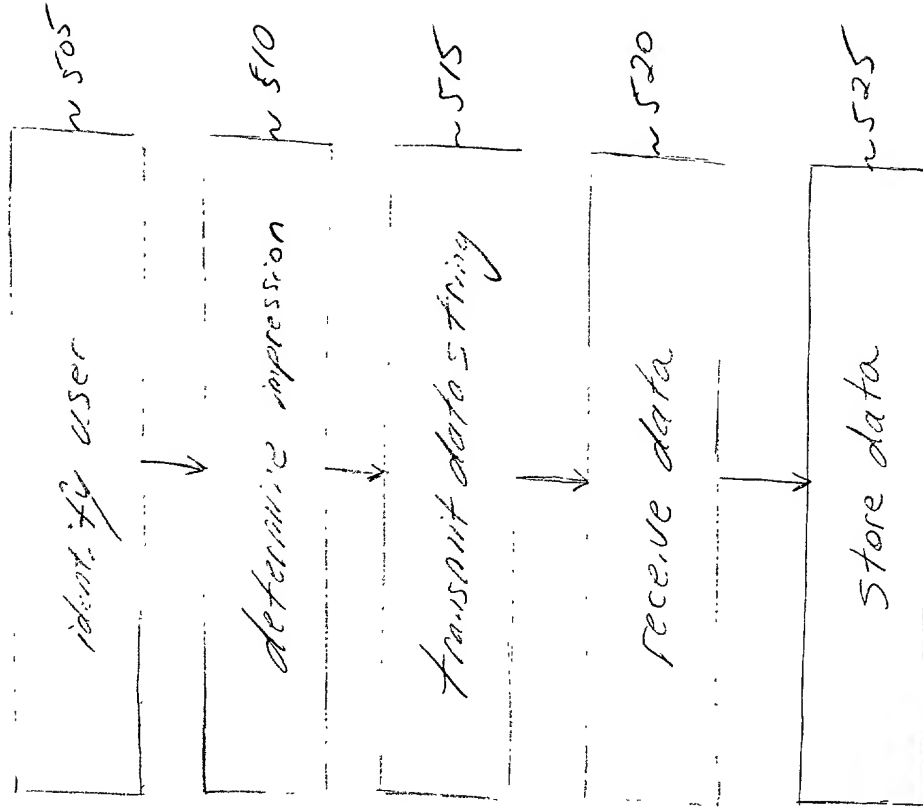 identify user
~ 505
determine impression
~ 510
transmit data string
~ 515
receive data
~ 520
store data
~ 525